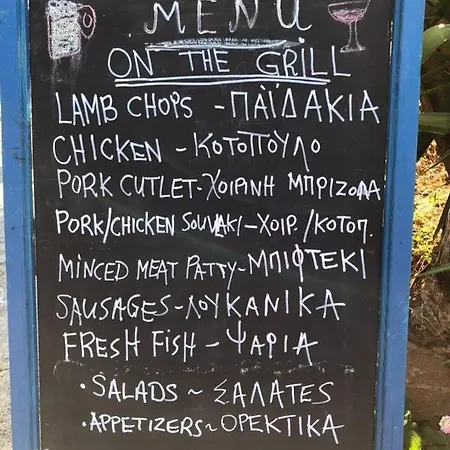 MENU
ON THE GRILL
LAMB CHOPS - ΠΑΪΔΑΚΙΑ
CHICKEN - ΚΟΤΟΠΟΥΛΟ
PORK CUTLET - ΧΟΙΡΙΝΗ ΜΠΡΙΖΟΛΑ
PORK/CHICKEN SOUVLAKI - ΧΟΙΡ./ΚΟΤΟΠ.
MINCED MEAT PATTY - ΜΠΙΦΤΕΚΙ
SAUSAGES - ΛΟΥΚΑΝΙΚΑ
FRESH FISH - ΨΑΡΙΑ
• SALADS ~ ΣΑΛΑΤΕΣ
• APPETIZERS ~ ΟΡΕΚΤΙΚΑ